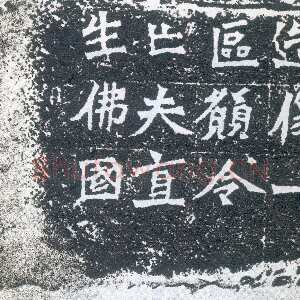 造像一
區願令
亡夫直
生佛國